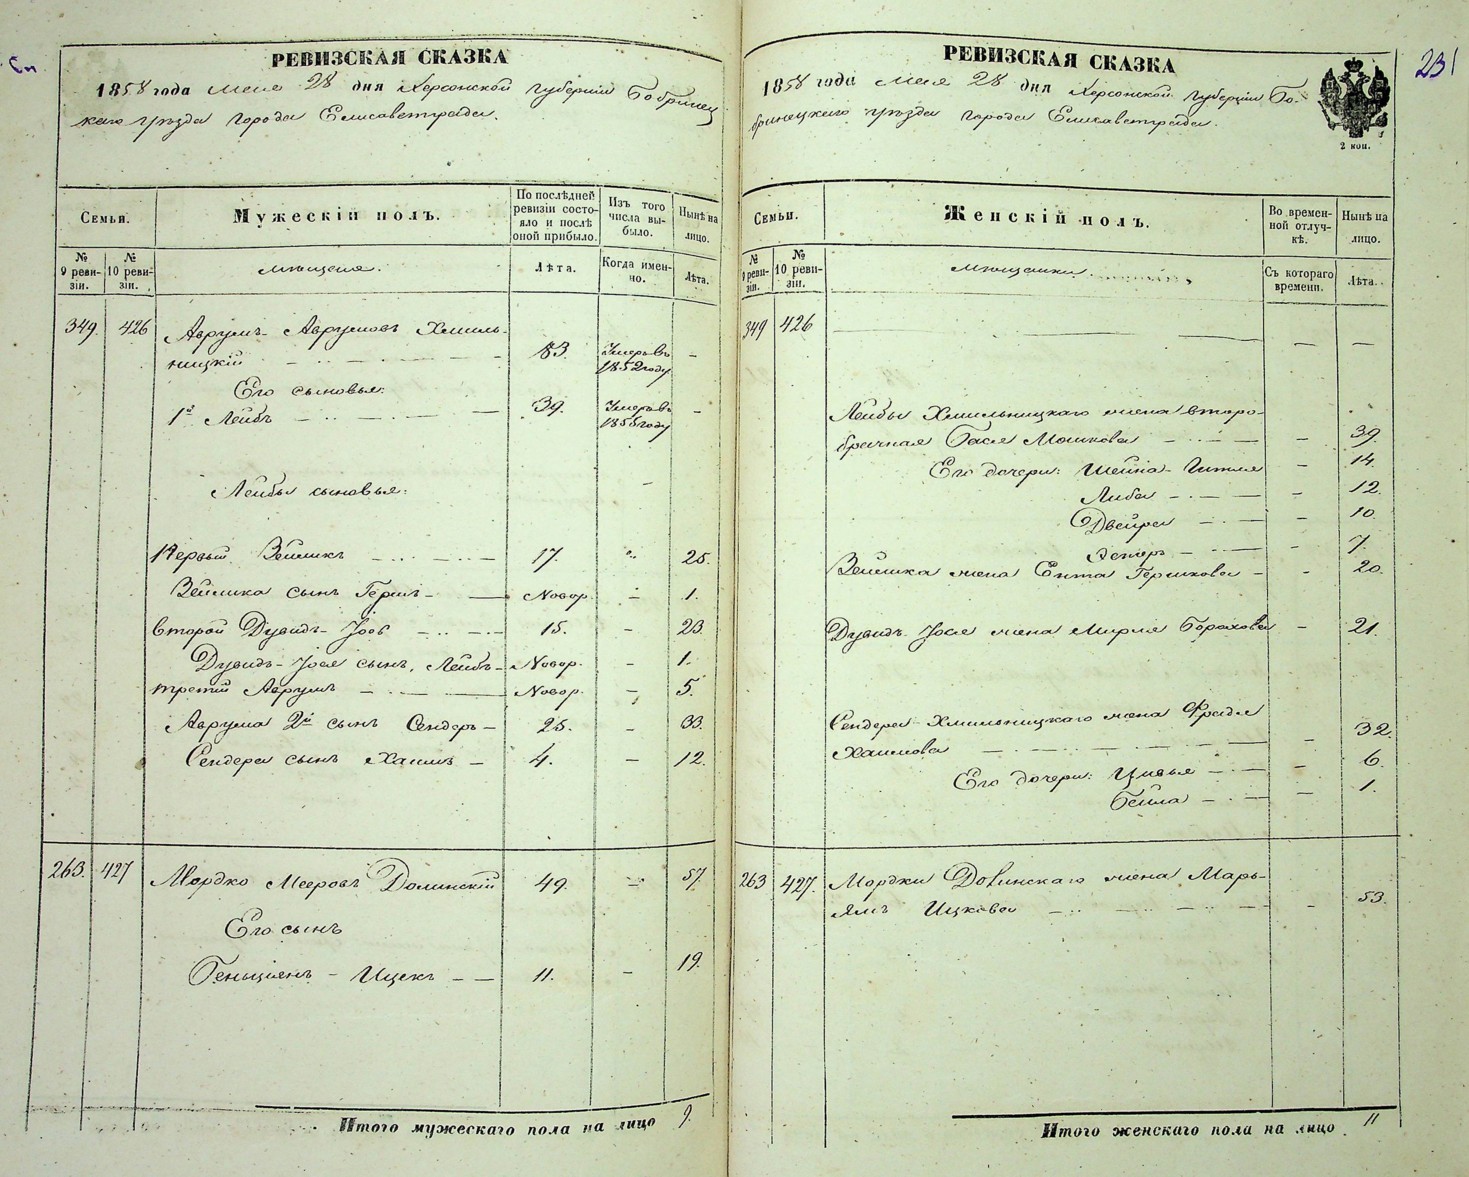 Сп
РЕВИЗСКАЯ СКАЗКА
1858 года Мая 28 дня Херсонской губернии Бобринец
каго уѣзда города Елисаветграда.
Семьи.
Мужескій полъ.
По послѣдней ревизіи состояло и послѣ оной прибыло.
Изъ того числа выбыло.
Нынѣ на лицо.
№ 9 ревизіи.
№ 10 ревизіи.
мѣщане.
Лѣта.
Когда именно.
Лѣта.
349. 426 Аврумъ Аврумовъ Хмиль-
ницкій — 83. Умеръ въ 1852 году —
Его сыновья:
1й Лейбъ — 39. Умеръ въ 1855 году —
Лейбы сыновья: —
Первый Зейликъ — 17. " 25.
Зейлика сынъ Гершъ — Новор. — 1.
второй Дувидъ-Іосъ — 15. — 23.
Дувидъ-Іося сынъ, Лейбъ — Новор. — 1.
третій Аврумъ — Новор. — 5.
Аврума 2й сынъ Сендеръ — 25. — 33.
Сендера сынъ Хаимъ — 4. — 12.
263. 427 Мордко Мееровъ Долинскій 49. — 57.
Его сынъ
Бенціянъ - Ицекъ — 11. — 19.
Итого мужескаго пола на лицо 9.
231
РЕВИЗСКАЯ СКАЗКА
1858 года Мая 28 дня Херсонской губерніи Бо-
бринецкаго уѣзда города Елисаветграда.
2 коп.
Семьи.
Женскій полъ.
Во временной отлучкѣ.
Нынѣ на лицо.
№ 9 ревизіи.
№ 10 ревизіи.
мѣщанки.
Съ котораго времени.
Лѣта.
349 426 — — —
Лейбы Хмильницкаго жена второ-
брачная Бася Мошкова — — 39.
Его дочери: Шейна-Гитля — 14.
Либа — — 12.
Двейра — — 10.
Эстеръ — — 7.
Зейлика жена Ента Гершкова — — 20.
Дувидъ-Іося жена Мирля Борахова — 21.
Сендера Хмильницкаго жена Фрадя
Хаимова — — 32.
Его дочери: Цивья — — 6.
Бейла — — 1.
263 427. Мордки Долинскаго жена Марь-
ямъ Ицкова — — 53.
Итого женскаго пола на лицо 11